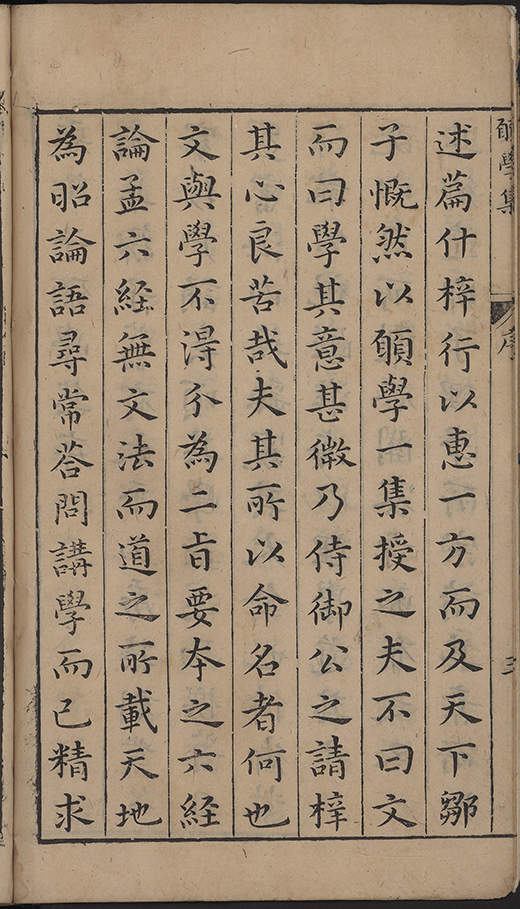 願學集
序
述篇什梓行以惠一方而及天下鄒
子慨然以願學一集授之夫不曰文
而曰學其意甚微乃侍御公之請梓
其心良苦哉夫其所以命名者何也
文與學不淂分為二旨要本之六經
論孟六經無文法而道之所載天地
為昭論語尋常荅問講學而已精求